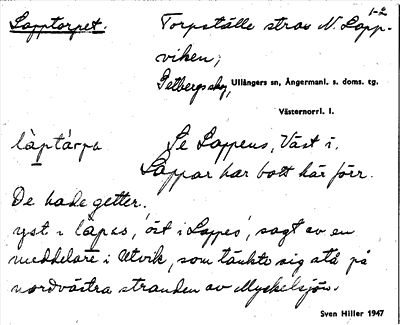 1-2
Lapptorpet. Torpställe strax N. Lapp-
viken;
Getbergsskog, Ullångers sn, Ångermanl. s. doms. tg.
Västernorrl. l.
làptárpa Se Lappens, Väst i.
Lappar har bott här förr.
De hade getter.
yst i làpes, 'öst i Lappes', sagt av en
meddelare i Utvik, som tänkte sig stå på
nordvästra stranden av Myckelsjön.
Sven Hiller 1947